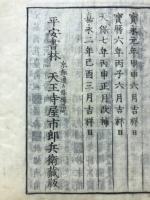 寶永元年甲申六月吉日
寶曆六年丙子六月吉旦
天保七年丙申正月改補
嘉永二年己酉三月吉日
平安書林
天王寺屋市郎兵衛藏版